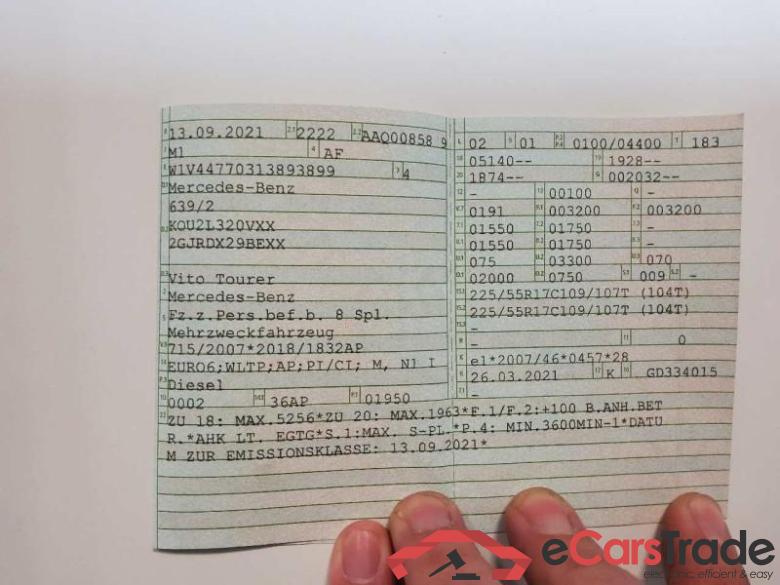 13.09.2021 2222 AAQ00858 9
M1 AF
W1V44770313893899 4
Mercedes-Benz
639/2
KOU2L320VXX
2GJRDX29BEXX
Vito Tourer
Mercedes-Benz
Fz.z.Pers.bef.b. 8 Spl.
Mehrzweckfahrzeug
715/2007*2018/1832AP
EURO6;WLTP;AP;PI/CI; M, N1 I
Diesel
0002 36AP 01950
02 01 0100/04400 183
05140-- 1928--
1874-- 002032--
- 00100 -
0191 003200 003200
01550 01750 -
01550 01750 -
075 03300 070
02000 0750 009 -
225/55R17C109/107T (104T)
225/55R17C109/107T (104T)
-
- 0
e1*2007/46*0457*28
26.03.2021 K GD334015
-
ZU 18: MAX.5256*ZU 20: MAX.1963*F.1/F.2:+100 B.ANH.BET
R.*AHK LT. EGTG*S.1:MAX. S-PL.*P.4: MIN.3600MIN-1*DATU
M ZUR EMISSIONSKLASSE: 13.09.2021*
eCarsTrade
electronic, efficient & easy